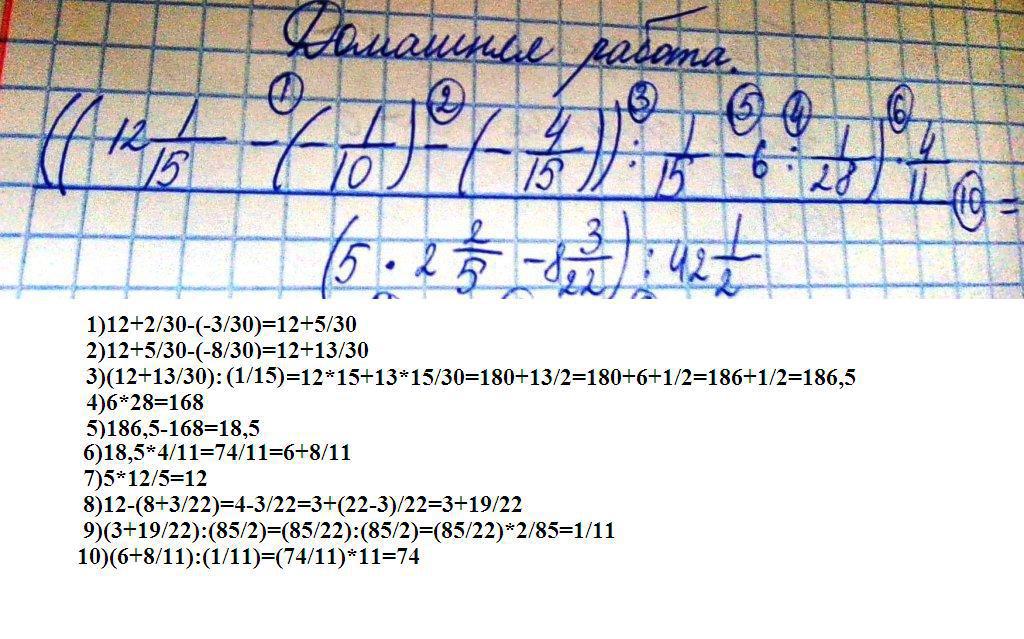 Домашняя работа.
① ② ③ ⑤ ④ ⑥
((12 1/15 - (- 1/10) - (- 4/15)) : 1/15 - 6 : 1/28) · 4/11
⑩ =
(5 · 2 2/5 - 8 3/22) : 42 1/2
1)12+2/30-(-3/30)=12+5/30
2)12+5/30-(-8/30)=12+13/30
3)(12+13/30): (1/15)=12*15+13*15/30=180+13/2=180+6+1/2=186+1/2=186,5
4)6*28=168
5)186,5-168=18,5
6)18,5*4/11=74/11=6+8/11
7)5*12/5=12
8)12-(8+3/22)=4-3/22=3+(22-3)/22=3+19/22
9)(3+19/22):(85/2)=(85/22):(85/2)=(85/22)*2/85=1/11
10)(6+8/11):(1/11)=(74/11)*11=74